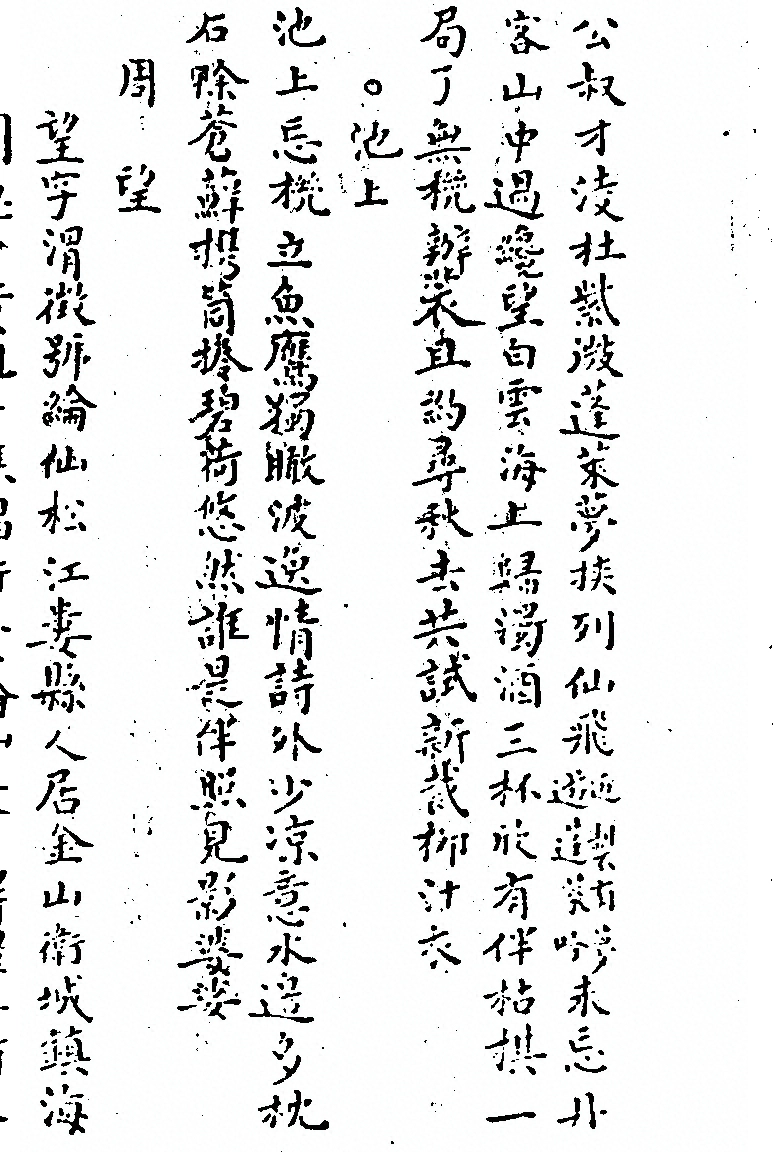 公叔才淩杜紫微蓬萊夢挾列仙飛近製有夢遊蓬萊吟未忘丹
客山中過纔望白雲海上歸濁酒三杯欣有伴枯棋一
局了無機辦裝且約尋秋去共試新裁柳汁衣
○池上
池上忘機立魚鷹獨瞰波逸情詩外少凉意水邊多枕
石賖蒼蘚携筒捲碧荷悠然誰是伴照見影婆娑
周望
望字渭徵號綸仙松江婁縣人居金山衛城鎮海